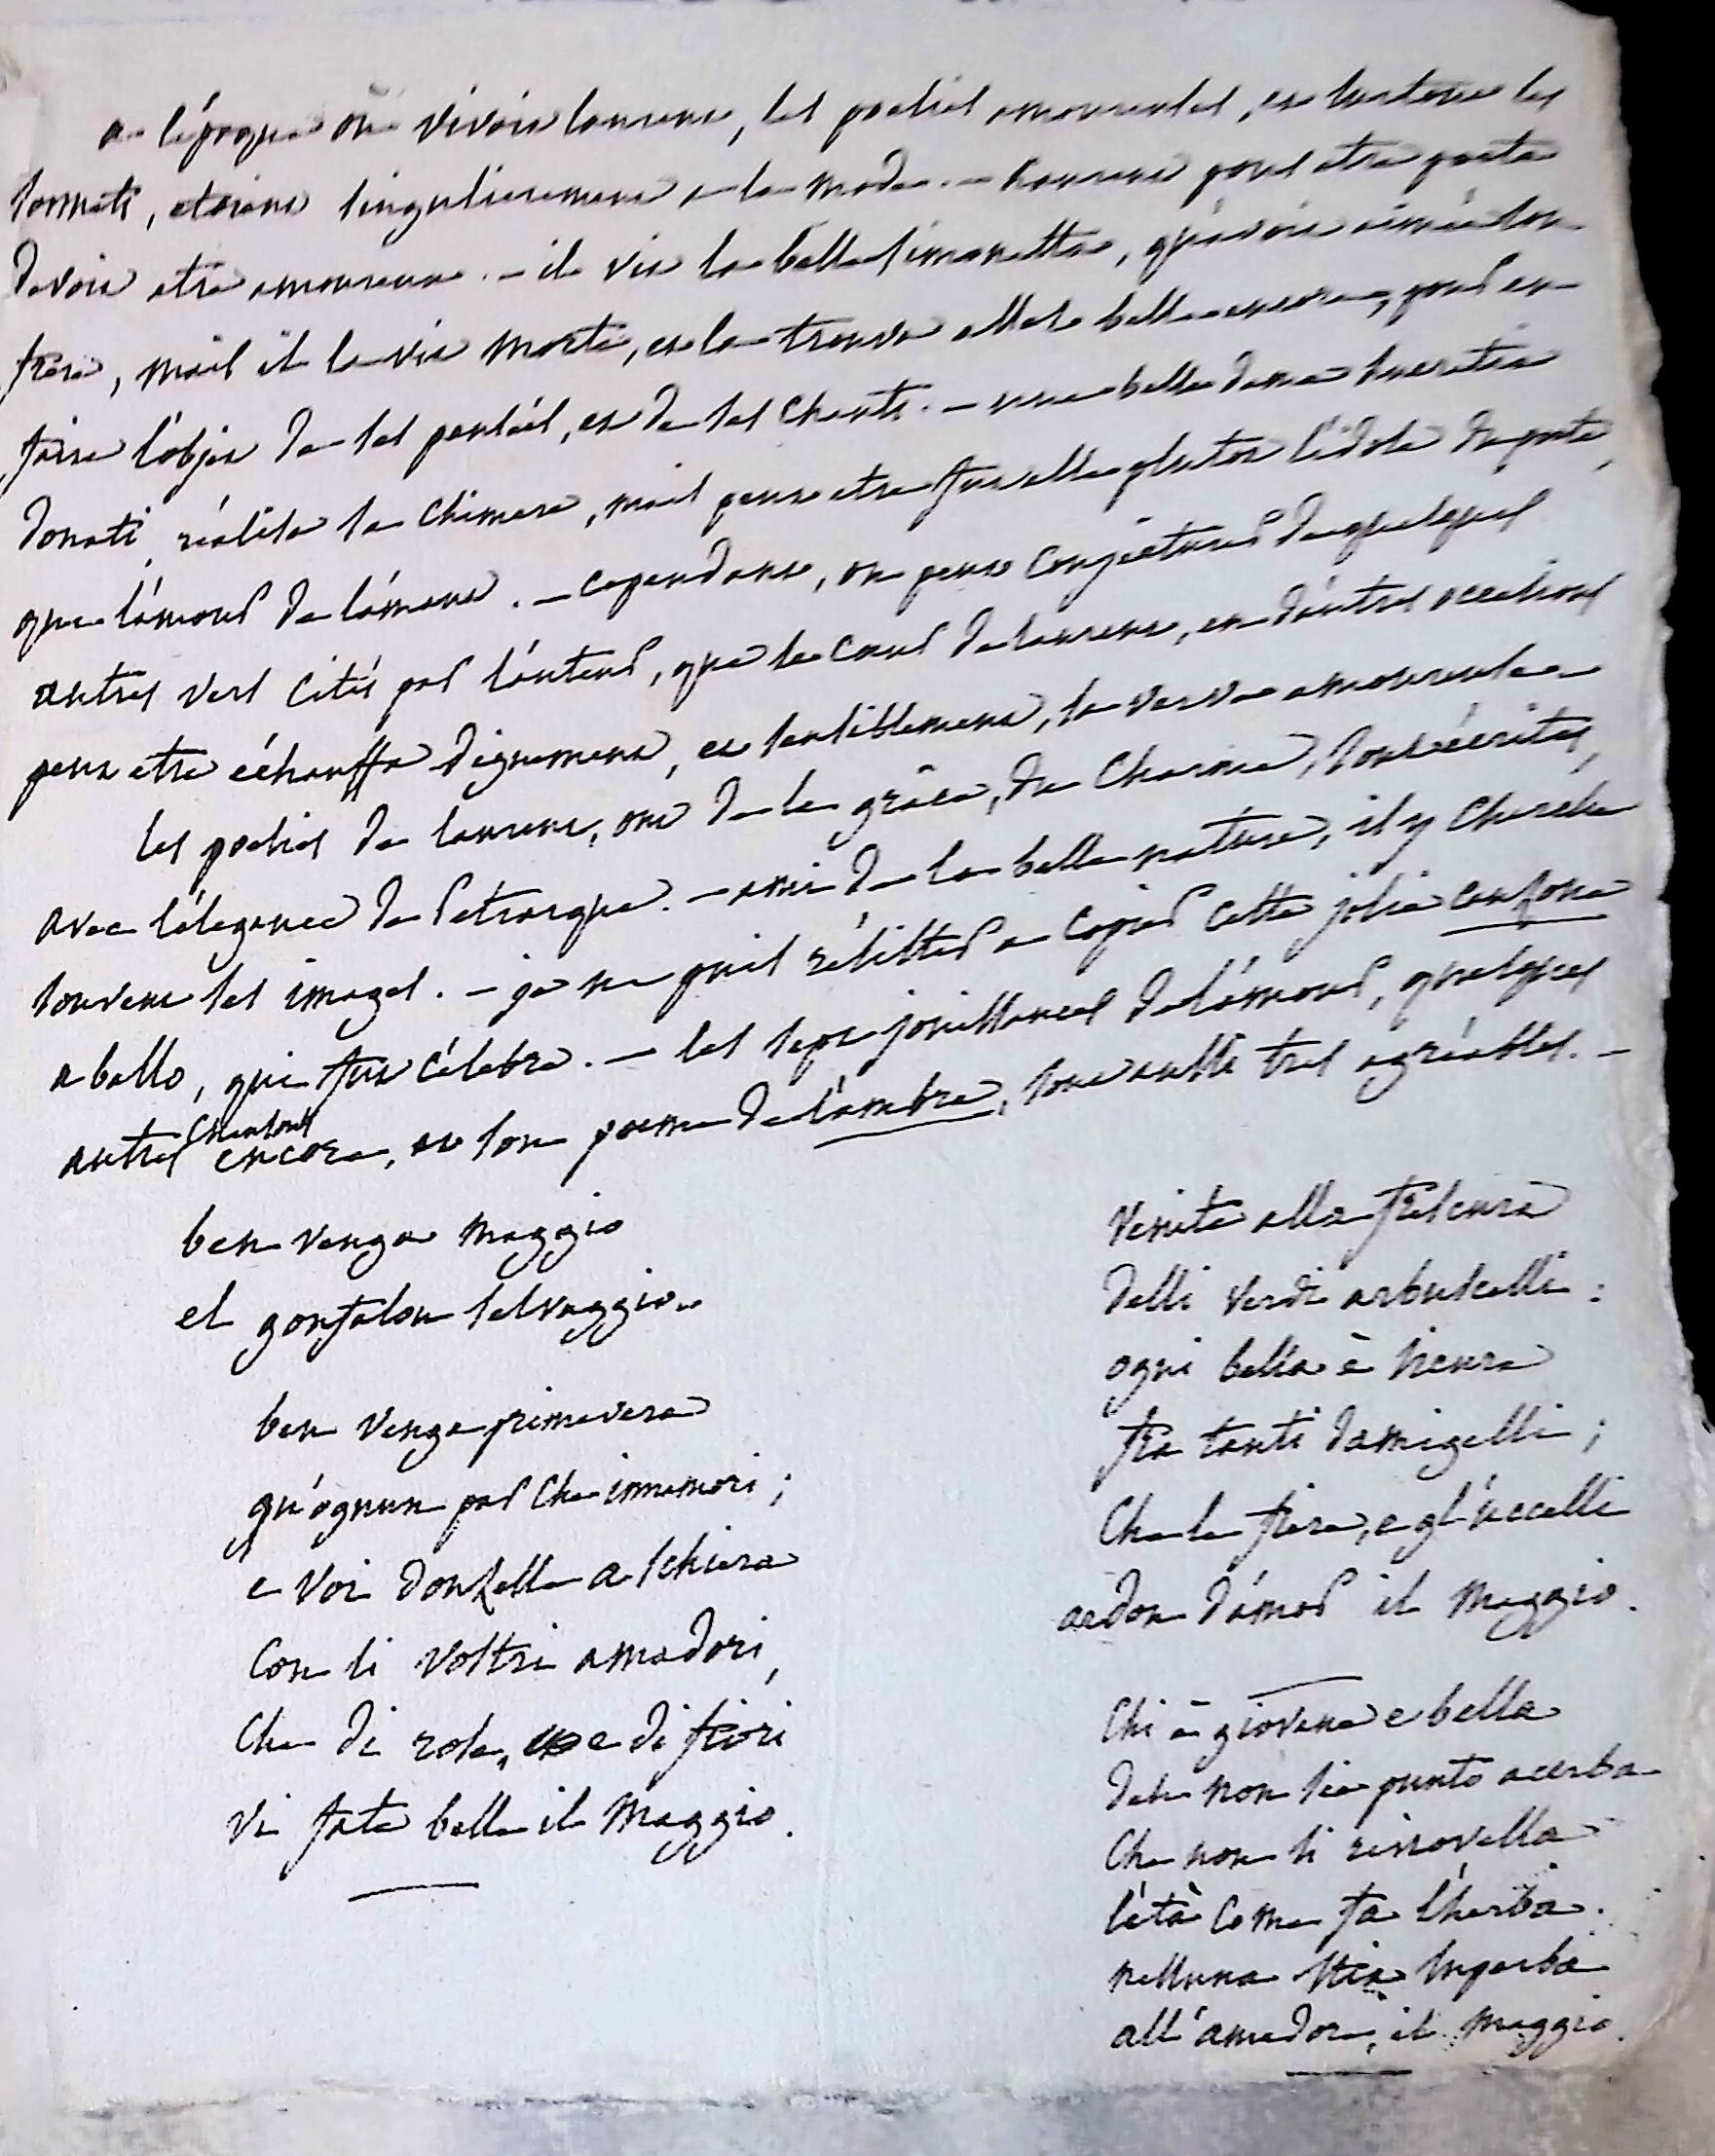 a l'époque ou vivoit laurent, les poesies amoureuses, et surtout les
sonnets, etoient singulierement a la mode. - laurent pour etre poete
devoit etre amoureux. - il vit la belle simonetta, qu'avoit aimée son
frere, mais il la vit morte, et la trouva assés belle encore, pour en
faire l'objet de ses pensées, et de ses chants. - une belle dame lucretia
donati, réalisa sa chimere, mais peut etre fut elle plutot l'idole du poete,
que l'amour de l'amant. - cependant, on peut conjecturer de quelques
autres vers cités par l'auteur, que le coeur de laurent, en d'autres occasions
peut etre échauffa dignement, et sensiblement, sa verve amoureuse
les poesies de laurent, ont de la grâce, du charme, sont écrites,
avec l'élegance de Petrarque. - ami de la belle nature, il y cherche
souvent ses images. - je ne puis résister a copier cette jolie canzone
a ballo, qui fut célebre. - les sept jouissances de l'amour, quelques
autres chansons encore, et son poeme de l'ambra, sont aussi tres agréables. -
ben venga maggio
el gonfalon selvaggio..
ben venga primavera
qu'ognun par che innamori;
e voi donzelle a schiera
con li vostri amadori,
che di rose, e di fiori
vi fate belle il maggio.
venite alla frescura
delli verdi arbuscelli:
ogni bella è sicura
fra tanti damigelli;
che le fiere, e gl'uccelli
ardon d'amor il maggio.
chi è giovane e bella
deh non sia punto acerba
che non si rinnovella
l'età come fa l'herba.
nessuna stia superba
all'amadore il maggio.